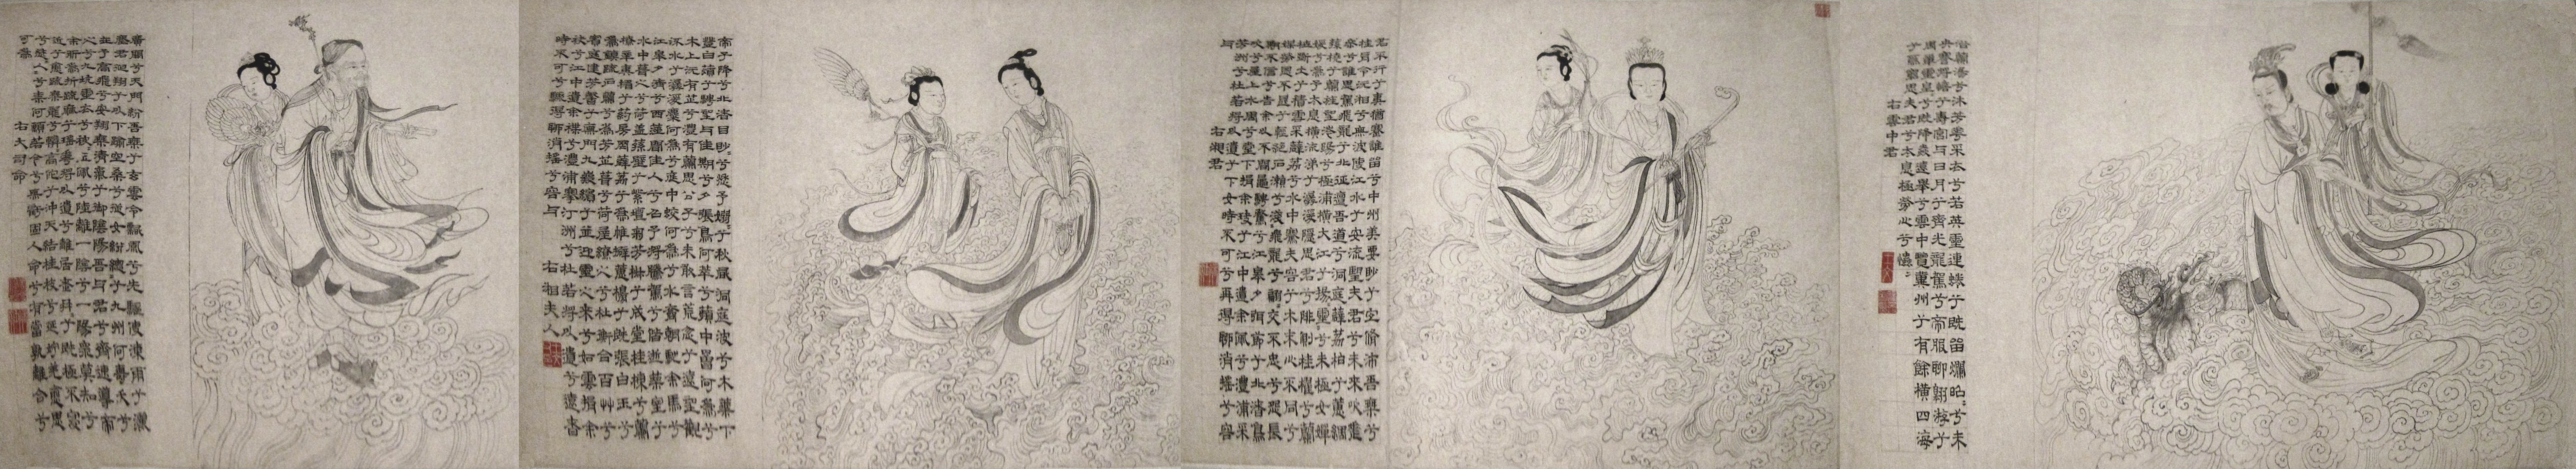 浴蘭湯兮沐芳華采衣兮若英靈連蜷兮既留爛昭昭兮未
央蹇將憺兮壽宮與日月兮齊光龍駕兮帝服聊翱遊兮
周章靈皇皇兮既降猋遠舉兮雲中覽冀州兮有餘橫四海
兮焉窮思夫君兮太息極勞心兮忡忡
右雲中君
君不行兮夷猶蹇誰留兮中州美要眇兮宜脩沛吾乘兮
桂舟令沅湘兮無波使江水兮安流望夫君兮未來吹參
差兮誰思駕飛龍兮北征邅吾道兮洞庭薜荔柏兮蕙綢
蓀橈兮蘭旌望涔陽兮極浦橫大江兮揚靈揚靈兮未極女嬋
媛兮爲余太息橫流涕兮潺湲隱思君兮陫側桂櫂兮蘭
枻斲冰兮積雪采薜荔兮水中搴芙蓉兮木末心不同兮
媒勞恩不甚兮輕絕石瀨兮淺淺飛龍兮翩翩交不忠兮怨長
期不信兮告余以不閒鼂騁騖兮江皋夕弭節兮北渚鳥
次兮屋上水周兮堂下捐余玦兮江中遺余佩兮澧浦采
芳洲兮杜若將以遺兮下女時不可兮再得聊逍遙兮容
與
右湘君
帝子降兮北渚目眇眇兮愁予嫋嫋兮秋風洞庭波兮木葉下
登白薠兮騁望與佳期兮夕張鳥何萃兮蘋中罾何爲兮
木上沅有芷兮澧有蘭思公子兮未敢言荒忽兮遠望觀
流水兮潺湲麋何爲兮庭中蛟何爲兮水裔朝馳余馬兮
江皋夕濟兮西澨聞佳人兮召予將騰駕兮偕逝築室兮
水中葺之兮荷蓋蓀壁兮紫壇播芳椒兮成堂桂棟兮蘭
橑辛夷楣兮葯房罔薜荔兮爲帷擗蕙櫋兮既張白玉兮
爲鎮疏石蘭兮爲芳芷葺兮荷屋繚之兮杜衡合百艸兮
實庭建芳馨兮廡門九嶷繽兮並迎靈之來兮如雲捐余
袂兮江中遺余褋兮澧浦搴汀洲兮杜若將以遺兮遠者
時不可兮驟得聊逍遙兮容與
右湘夫人
廣開兮天門紛吾乘兮玄雲令飄風兮先驅使凍雨兮灑
塵君迴翔兮以下踰空桑兮從女紛總總兮九州何壽夭兮
在予高飛兮安翔乘清氣兮御陰陽吾與君兮齊速導帝
之兮九坑靈衣兮被被玉佩兮陸離一陰兮一陽衆莫知兮
余所爲折疏麻兮瑤華將以遺兮離居老冉冉兮既極不寖
近兮愈疏乘龍兮轔轔高駝兮沖天結桂枝兮延佇羌愈思
兮愁人愁人兮柰何願若今兮無虧固人命兮有當孰離合兮
可爲
右大司命